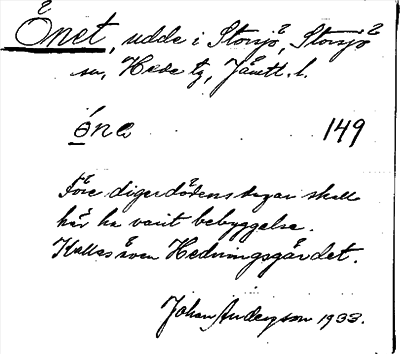 Önet, udde i Storsjö, Storsjö
sn, Hede tg, Jämtl. l.
öna 149
Före digerdödens dagar skall
här ha varit bebyggelse.
Kallas även Hedningsgärdet.
Johan Anderson 1933.